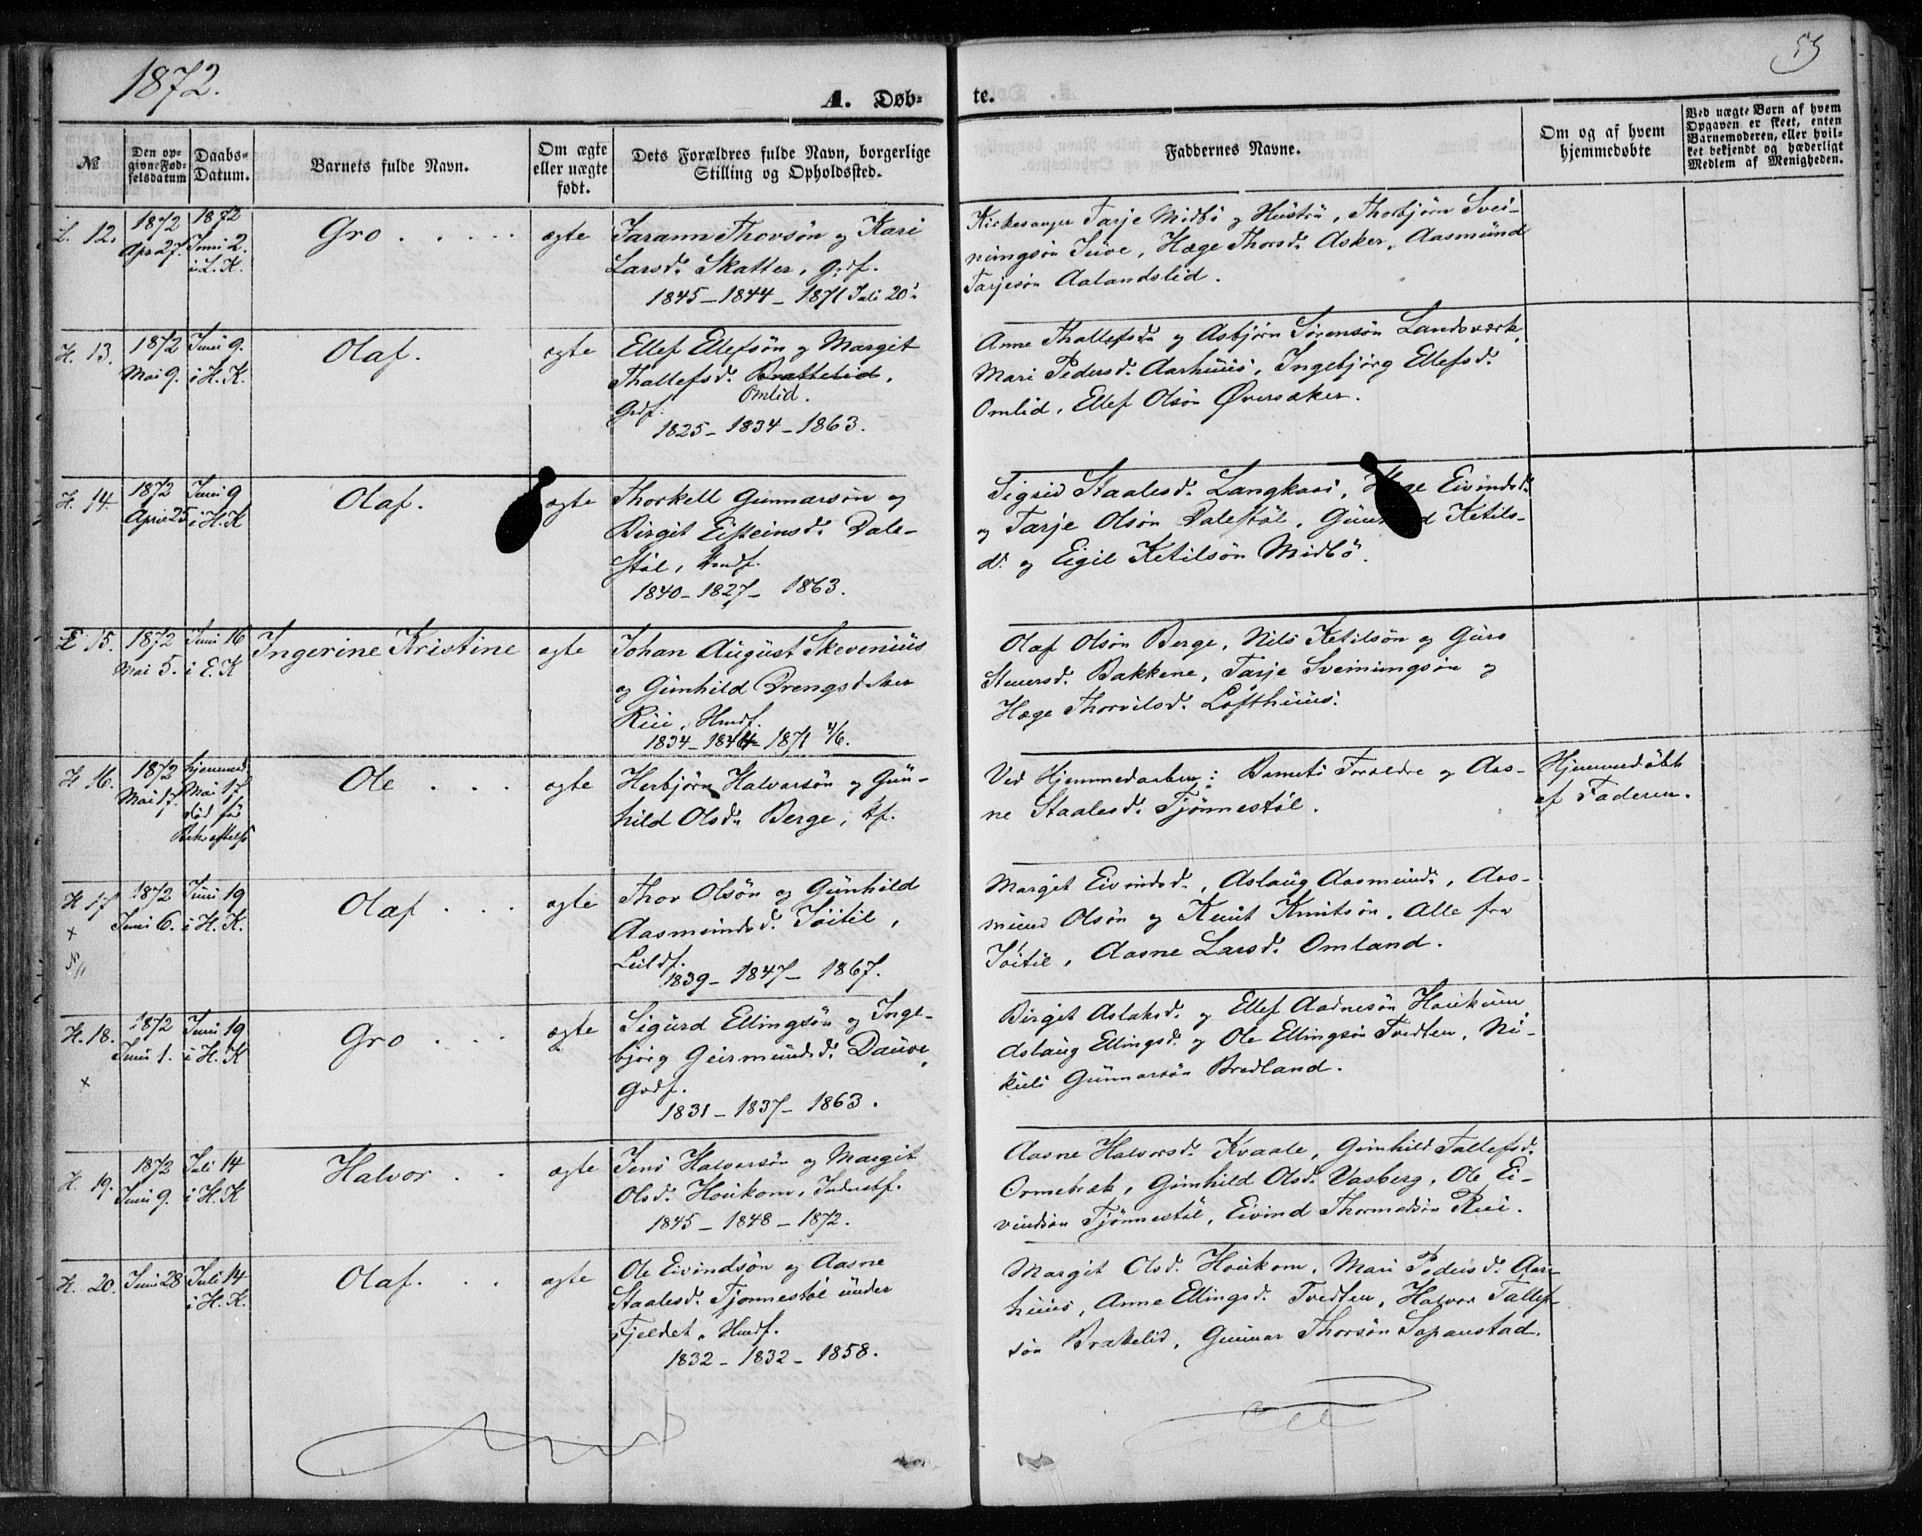 1872.
55
A. Døb-
te.
№
Den op-
givne Fød-
selsdatum
Daabs-
Datum.
Barnets fulde Navn.
Om ægte
eller uægte
født.
Dets Forældres fulde Navn, borgerlige
Stilling og Opholdssted.
Faddernes Navne.
Om og af hvem
hjemmedøbte
Ved uægte Børn af hvem
Opgaven er skeet, enten
Barnemoderen, eller hvil-
ket bekjendt og hæderligt
Medlem af Menigheden.
L. 12.
1872
Apr 27.
1872
Juni 2.
i L. K.
Gro
ægte
Jarann Thorsøn og Kari
Larsd. Skatter, Grdf.
1845 - 1844 - 1871 Juli 20
Kirkesanger Tarje Midbø og Hustru, Thorbjørn Svei-
nungsøn Juve, Hæge Thorsd. Asker, Aasmund
Tarjesøn Aalandslid.
H. 13.
1872
Mai 9.
Juni 9.
i H. K.
Olaf.
ægte
Ellef Ellefsøn og Margit
Thallefsd. Brattelid,
Omlid.
Grdf.
1825 - 1834 - 1863.
Anne Thallefsd. og Asbjørn Sørensøn Landsverk,
Mari Pedersd. Aarhuus, Ingebjørg Ellefsd.
Omlid, Ellef Olsøn Øversaker.
H. 14.
1872
April 25
Juni 9
i H. K
Olaf.
ægte
Thorkell Gunnarsøn og
Birgit Eisteinsd. Dale-
støl, Hmdf.
1840 - 1827 - 1863.
Sigrid Staalesd. Langkaasi, Hæge Eivindsd.
og Tarje Olsøn Dalestøl, Gunhild Ketils-
d. og Eigil Ketilsøn Midbø.
E. 15.
1872
Mai 5.
Juni 16
i E. K
Ingerine Kristine
ægte
Johan August Skevenius
og Gunhild Drengsd.
Rui, Hmdf.
1834 - 1844 - 1871 4/6.
Olaf Olsøn Berge, Nils Ketilsøn og Guro
Steuersd. Bakkene, Tarje Sveinungsøn og
Hæge Thorvilsd. Lofthuus.
H 16.
1872
Mai 17.
hjemmed.
Mai 17
død før
Bekræftelse
Ole
ægte
Herbjørn Halvorsøn og Gun-
hild Olsd. Berge, Hf.
Ved Hjemmedaaben: Barnets Forældre og Aas-
ne Staalesd. Tjønnestøl.
Hjemmedøbt
af Faderen.
H 17
1872
Juni 6.
Juni 19
i H. K.
Olaf
ægte
Thor Olsøn og Gunhild
Aasmundsd. Tøitil,
Leildf.
1839 - 1847 - 1867.
Margit Eivindsd., Aslaug Aasmunds, Aas-
mund Olsøn og Knut Knutsøn, Alle fra
Tøitil, Aasne Larsd. Omland.
H. 18.
1872
Juni 1.
Juni 19
i H. K
Gro
ægte
Sigurd Ellingsøn og Inge-
bjørg Geirmundsd. Dauve,
Grdf.
1831 - 1837 - 1863.
Birgit Aslaksd. og Ellef Aadnesøn Houkum
Aslaug Ellingsd. og Ole Ellingsøn Tvedten, Ni-
kuls Gunnarsøn Bredland.
H. 19.
1872
Juni 9.
Juli 14
i H. K
Halvor
ægte
Jens Halvorsøn og Margit
Olsd. Houkom, Inderstf.
1845 - 1848 - 1872.
Aasne Halvorsd. Kvaale, Gunhild Tallefsd.
Ormebræk, Gunhild Olsd. Vasberg, Ole Ei-
vindsøn Tjønnestøl, Eivind Thormodsøn Rui.
H. 20.
Juni 28
Juli 14
i H. K.
Olaf.
ægte
Ole Eivindsøn og Aasne
Staalesd. Tjønnestøl under
Fjeldet, Hmdf.
1832 - 1832 - 1858.
Margit Olsd. Houkom, Mari Pedersd. Aar-
huus, Anne Ellingsd. Tvedten, Halvor Tallef-
søn Brakelid, Gunnar Thorsøn Sapanstad.